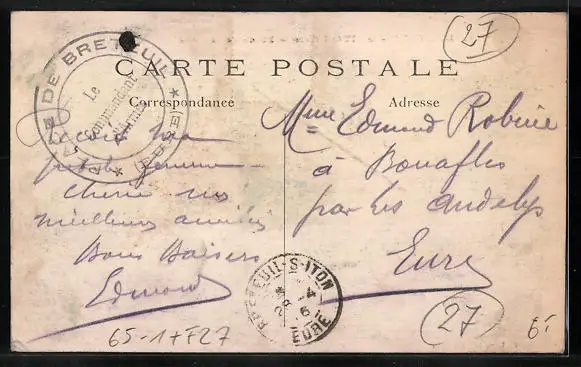 27
CARTE POSTALE
Correspondance
Adresse
DE BRETEUIL
Le
Commandant
d'Armes
(EURE)
Mme Edmond Robine
à Bouafles
par les andelys
Eure
ma
petite femme
cherie
meilleurs amitiés
Bons Baisers
Edmond
BRETEUIL-S-ITON
EURE
65-17F27
27
6f